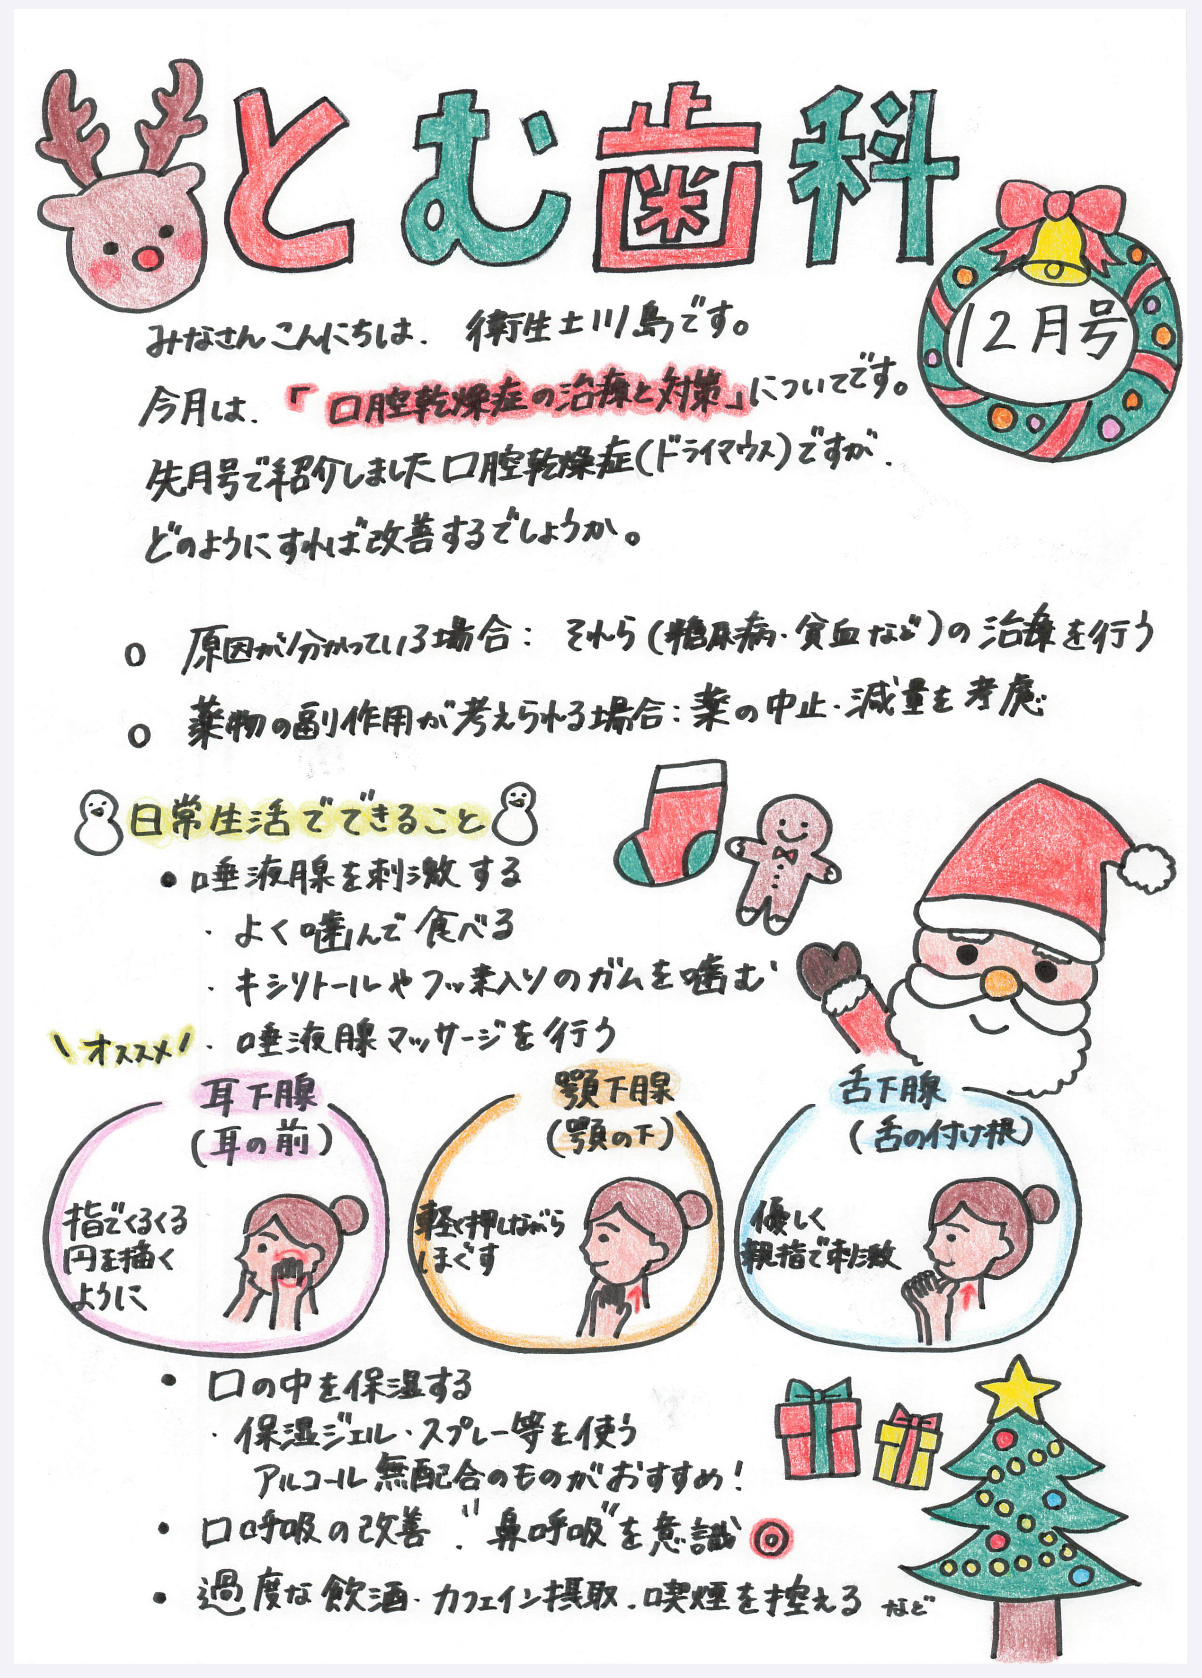 とむ歯科
12月号
みなさんこんにちは、衛生士川島です。
今月は、「口腔乾燥症の治療と対策」についてです。
先月号で紹介しました口腔乾燥症(ドライマウス)ですが、
どのようにすれば改善するでしょうか。
○ 原因が分かっている場合：それら(糖尿病・貧血など)の治療を行う
○ 薬物の副作用が考えられる場合：薬の中止・減量を考慮
日常生活でできること
● 唾液腺を刺激する
・よく噛んで食べる
・キシリトールやフッ素入りのガムを噛む
\オススメ/ ・唾液腺マッサージを行う
耳下腺
(耳の前)
指でくるくる
円を描く
ように
顎下腺
(顎の下)
軽く押しながら
ほぐす
舌下腺
(舌の付け根)
優しく
親指で刺激
● 口の中を保湿する
・保湿ジェル・スプレー等を使う
アルコール無配合のものがおすすめ！
● 口呼吸の改善、"鼻呼吸"を意識◎
● 過度な飲酒・カフェイン摂取、喫煙を控える など